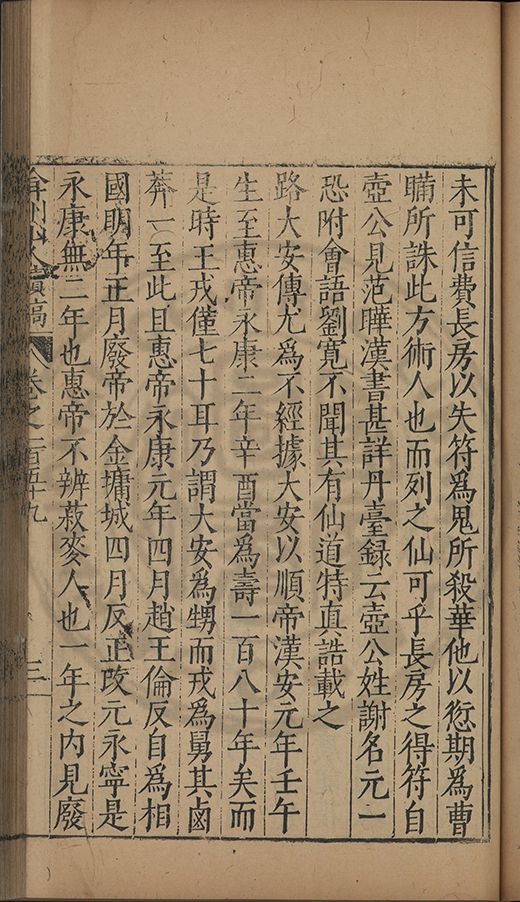 未可信費長房以失符爲鬼所殺華他以愆期爲曹
瞞所誅此方術人也而列之仙可乎長房之得符自
壺公見范曄漢書甚詳丹臺録云壺公姓謝名元一
恐附會語劉寬不聞其有仙道特真誥載之
路大安傳尤爲不經據大安以順帝漢安元年壬午
生至惠帝永康二年辛酉當爲壽一百八十年矣而
是時王戎僅七十耳乃謂大安爲甥而戎爲舅其鹵
莽一至此且惠帝永康元年四月趙王倫反自爲相
國明年正月廢帝於金墉城四月反正改元永寧是
永康無二年也惠帝不辨菽麥人也一年之内見廢
弇州山人續稿 卷之一百五十九 三